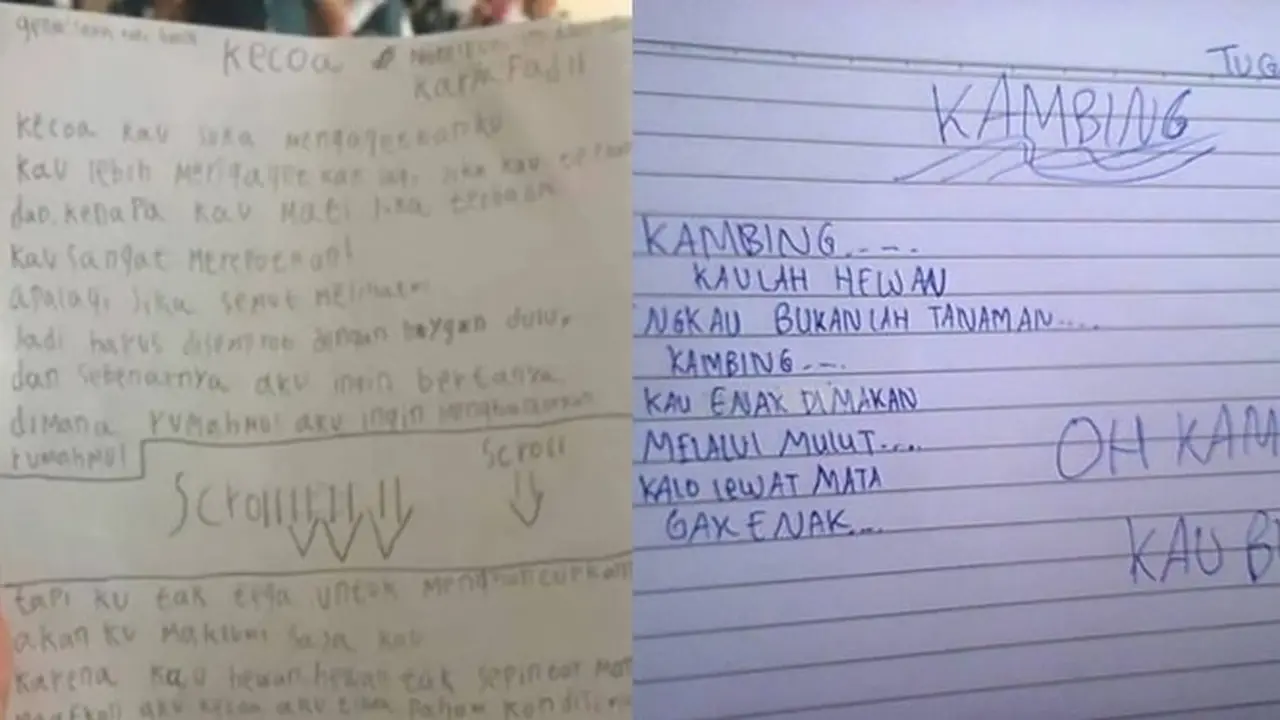 Kecoa
Karya Fadil
Kecoa kau suka mengagetkanku
kau lebih mengagetkan lagi jika kau
dan kenapa kau mati jika terbalik
kau sangat merepotkan!
apalagi jika semut
Jadi harus disemprot dengan baygon dulu,
dan sebenarnya aku ingin bertanya
dimana rumahmu! aku ingin menghancurkan
rumahmu!
Scrollllll
Scroll
tapi ku tak tega untuk
akan ku maklumi saja kau
karena kau hewan hewan tak sepintar
aku kecoa aku tidak paham
TUG
KAMBING
KAMBING.----
KAULAH HEWAN
NGKAU BUKANLAH TANAMAN....
KAMBING.---
KAU ENAK DIMAKAN
MELALUI MULUT.....
KALO LEWAT MATA
GAK ENAK...
OH KAM
KAU B